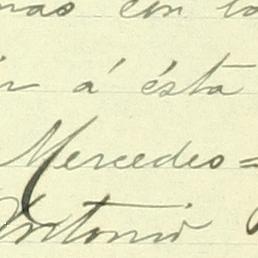 con
á ésta
Mercedes=
Antonio